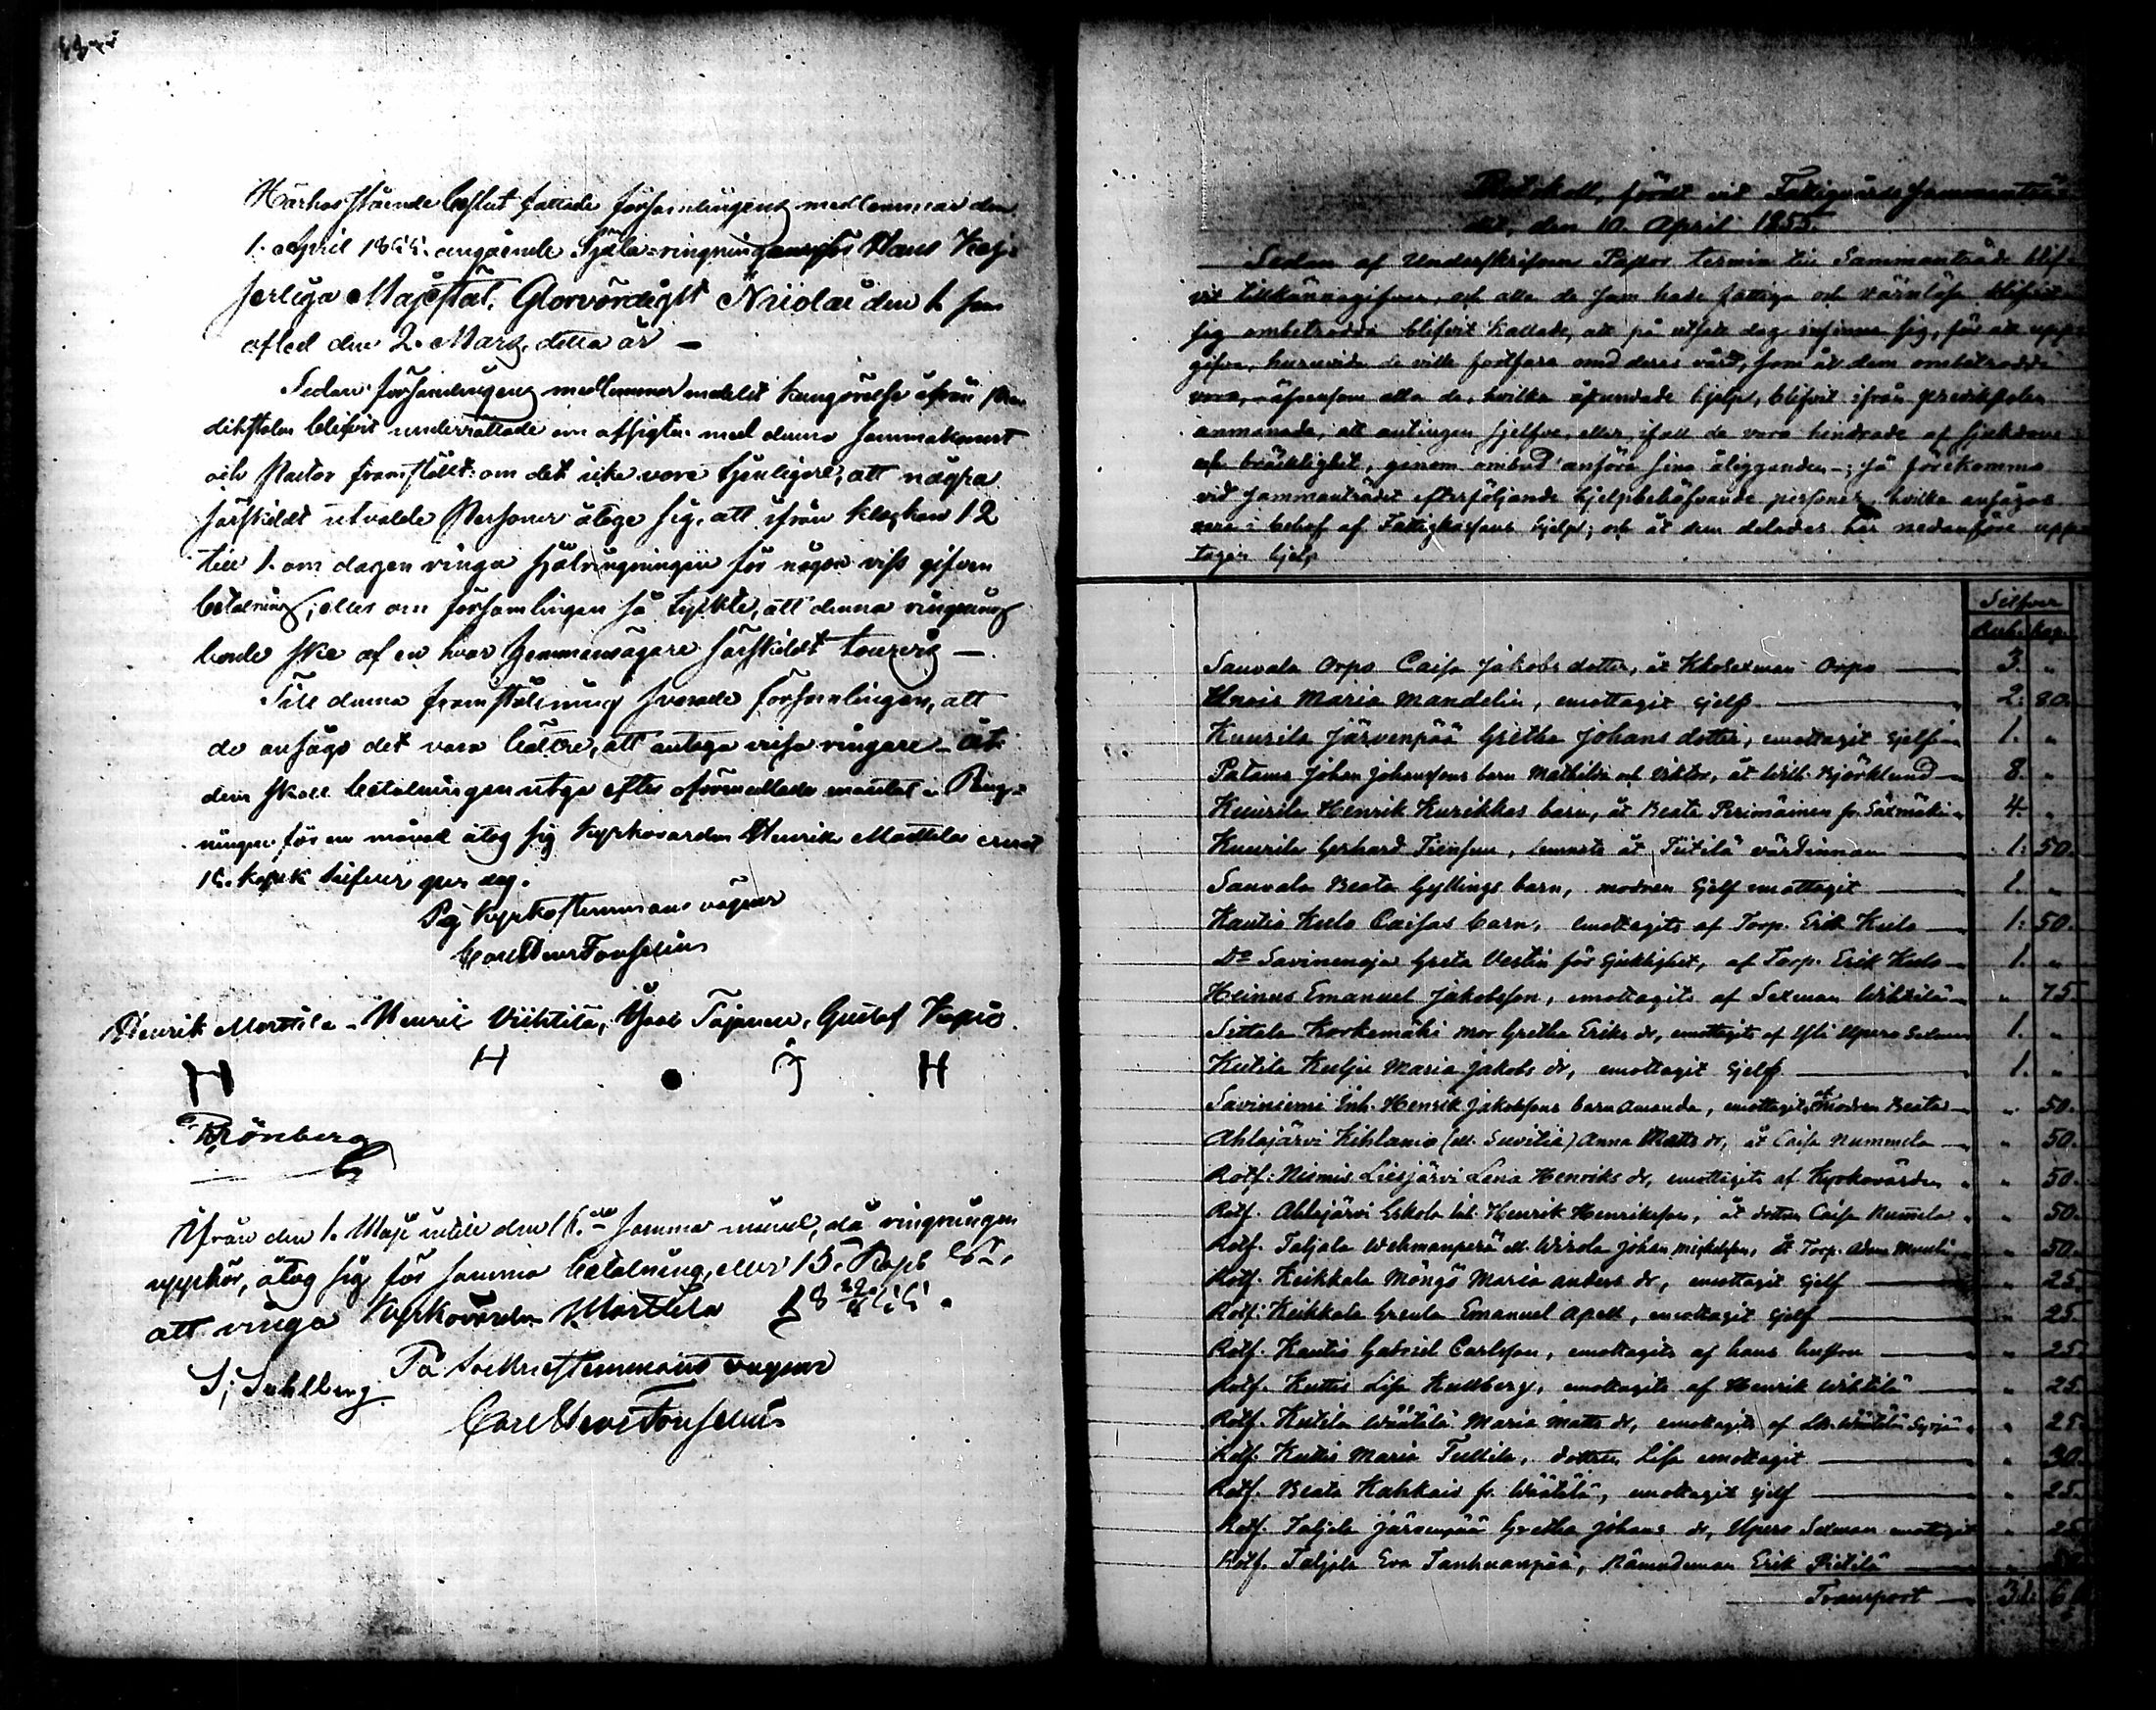 Härhos stående beslut fattade församlingens medlemmar den
1. April 1855. angående Själa-ringning Hans Kej-
serliga Majestät, Glorvördigst Nicolai den 1 som
afled den 2. Mars detta år —
Sedan församlingens medlemmar medelst kungörelse ifrån Pre-
dikstolen blifvit underrättade om afsigten med denna sammankomst
och Pastor framstält: om det icke vore tjenligare, att några
särskildt utvalde Personer åtoge sig, att ifrån klockan 12
till 1. om dagen ringa själringningen för någon viss gifven
betalning; eller om församlingen så tyckte, att denna ringning
borde ske af en hvar Hemmansägare särskildt tourvis —
Till denna framställning svarade församlingen, att
de ansågo det vara bättre, att antaga vissa ringare — åt
dem skall betalningen utgå efter oförmedlade mantal. Ring-
ningen för en månad åtog sig Kyrkovärden Henrik Mattila emot
15. kopek silfver per dag.
På Kyrkostämmans vägnar
Carl Fonselius
Henrik Mattila - Henrik Viihtilä, Gustaf
H H H
Grönberg
Ifrån den 1. Maji intill den samma månad, då ringningen
upphör, åtog sig för samma betalning, eller 15. Kopk
att ringa Kyrkovärden Mattila
På Sockenstämmans vägnar
S. Sahlberg
Carl Fonselius
Protokoll, fördt vid Fattigvårds Sammanträ-
det, den 10. April 1855.
Sedan af Underskrifven Pastor termin till Sammanträde blif-
vit tillkännagifven, och alla de som hade fattiga och värnlösa
sig ombetrodda blifvit kallade, att på utsatt dag infinna sig, för att upp-
gifva, huruvida de ville fortfara med deras vård, som åt dem ombetrodde
vore, äfvensom alla de, hvilka åstundade hjelp, blifvit ifrån predikstolen
anmanade, att antingen sjelfve, eller ifall de voro hindrade af sjukdom
och bräcklighet, genom ombud anföra sina åligganden —; så förekommo
vid sammanträdet efterföljande hjelpbehöfvande personer, hvilka ansågos
vara i behof af Fattigkassans hjelp; och åt dem delades här nedanföre upp-
tagen hjelp
Silfver
Rub. Kop.
Sauvala Orpo Caisa Jakobs dotter, åt Orpo — 3. "
Maria Mandelin, emottagit sjelf — 2. 80.
Kuurila Järvenpää Gretha Johans dotter, emottagit sjelf — 1. "
Patama Johan Johanssons barn Mathilda och Viktor, åt Wilh. Björklund — 8. "
Kuurila Henrik Kurikkas barn, åt Beata fr. Saxmäki — 4. "
Kuurila Gerhard, åt Tiitilä värdinnan — 1. 50.
Sauvala Beata Gyllings barn, modren sjelf emottagit — 1. "
Kautio Kulo Caisas barn, emottagits af Torp. Erik Kulo — 1. 50.
Do Savinenoja Greta Vestin för sjuklighet, af Torp. Erik Kulo — 1. "
Heinus Emanuel Jakobsson, emottagits af Sexman Wihtilä — " 75.
Sittala Korkemäki Mor Gretha Eriks dr, emottagits af Yli Upero Sexman 1. "
Kutila Kulju Maria Jakobs dr, emottagit sjelf — 1. "
Saviniemi Inh. Henrik Jakobssons barn Amanda, emottagits af modren Beata — " 50.
Ahlajärvi Kihlanio Anna Matts dr, åt Caisa Nummela — " 50.
Rotf. Niemis Liesjärvi Lena Henriks dr, emottagits af Kyrkovärden " 50.
Rotf. Ahlajärvi Eskola Henrik Henriksson, åt dottren Caisa Nummela " 50.
Rotf. Taljala Wehmanperä Johan Michelsson, åt Torp. " 50.
Rotf. Keikkala Möngö Maria Anders dr, emottagit sjelf — " 25.
Rotf. Keikkala Emanuel Apell, emottagit sjelf — " 25.
Rotf. Kautio Gabriel Carlsson, emottagits af hans hustru — " 25.
Rotf. Kuttis Lisa Kullberg, emottagits af Henrik Wihtilä — " 25.
Rotf. Kutila Wäätälä Maria Matts dr, emottagits af " 25.
Rotf. Kuttis Maria Tullila, dottren Lisa emottagit — " 30.
Rotf. Beata Kahkais fr Wäätälä, emottagit sjelf — " 25.
Rotf. Taljala Järvenpää Gretha Johans dr, Upero Sexman emottagit " 25
Rotf. Taljala Eva Tanhuanpää, Nämndeman Erik Pietilä
Transport — 31.